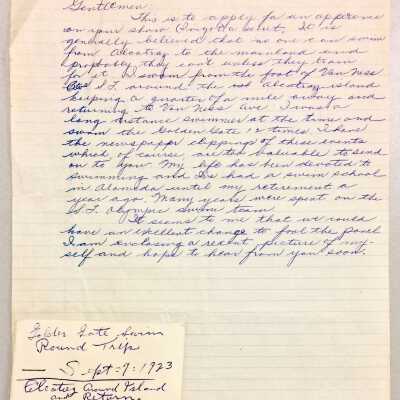 Gentlemen:
This is to apply for an apperence
on your show I've got a secret. It is
generally believed that no one can swim
from Alcatraz to the mainland and
probably they can't unless they train
for it. I swam from the foot of Van Ness
S.F. around the Alcatraz island
keeping a quarter of a mile away and
returning to Van Ness Ave. I was a
long distance swimmer at the time and
swam the Golden Gate 12 times. I have
the newspaper clippings of these events
which of course are too valuable to send
on to you. My life has been devoted to
swimming and I had a swim school
in Alameda until my retirement a
year ago. Many years were spent on the
S.F. Olympic swim team.
It seems to me that we could
have an exellent chance to fool the panel
I am enclosing a recent picture of my-
self and hope to hear from you soon.
Golden Gate Swim
Round Trip
— Sept: 9: 1923
Alcatraz Around Island
and Return